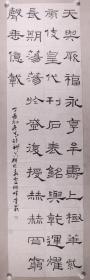 天與厥福永享牟壽上極華
紫旁伎皇代刊石表銘與乾運耀
長期蕩蕩於盛復授赫赫罔窮
聲垂億載